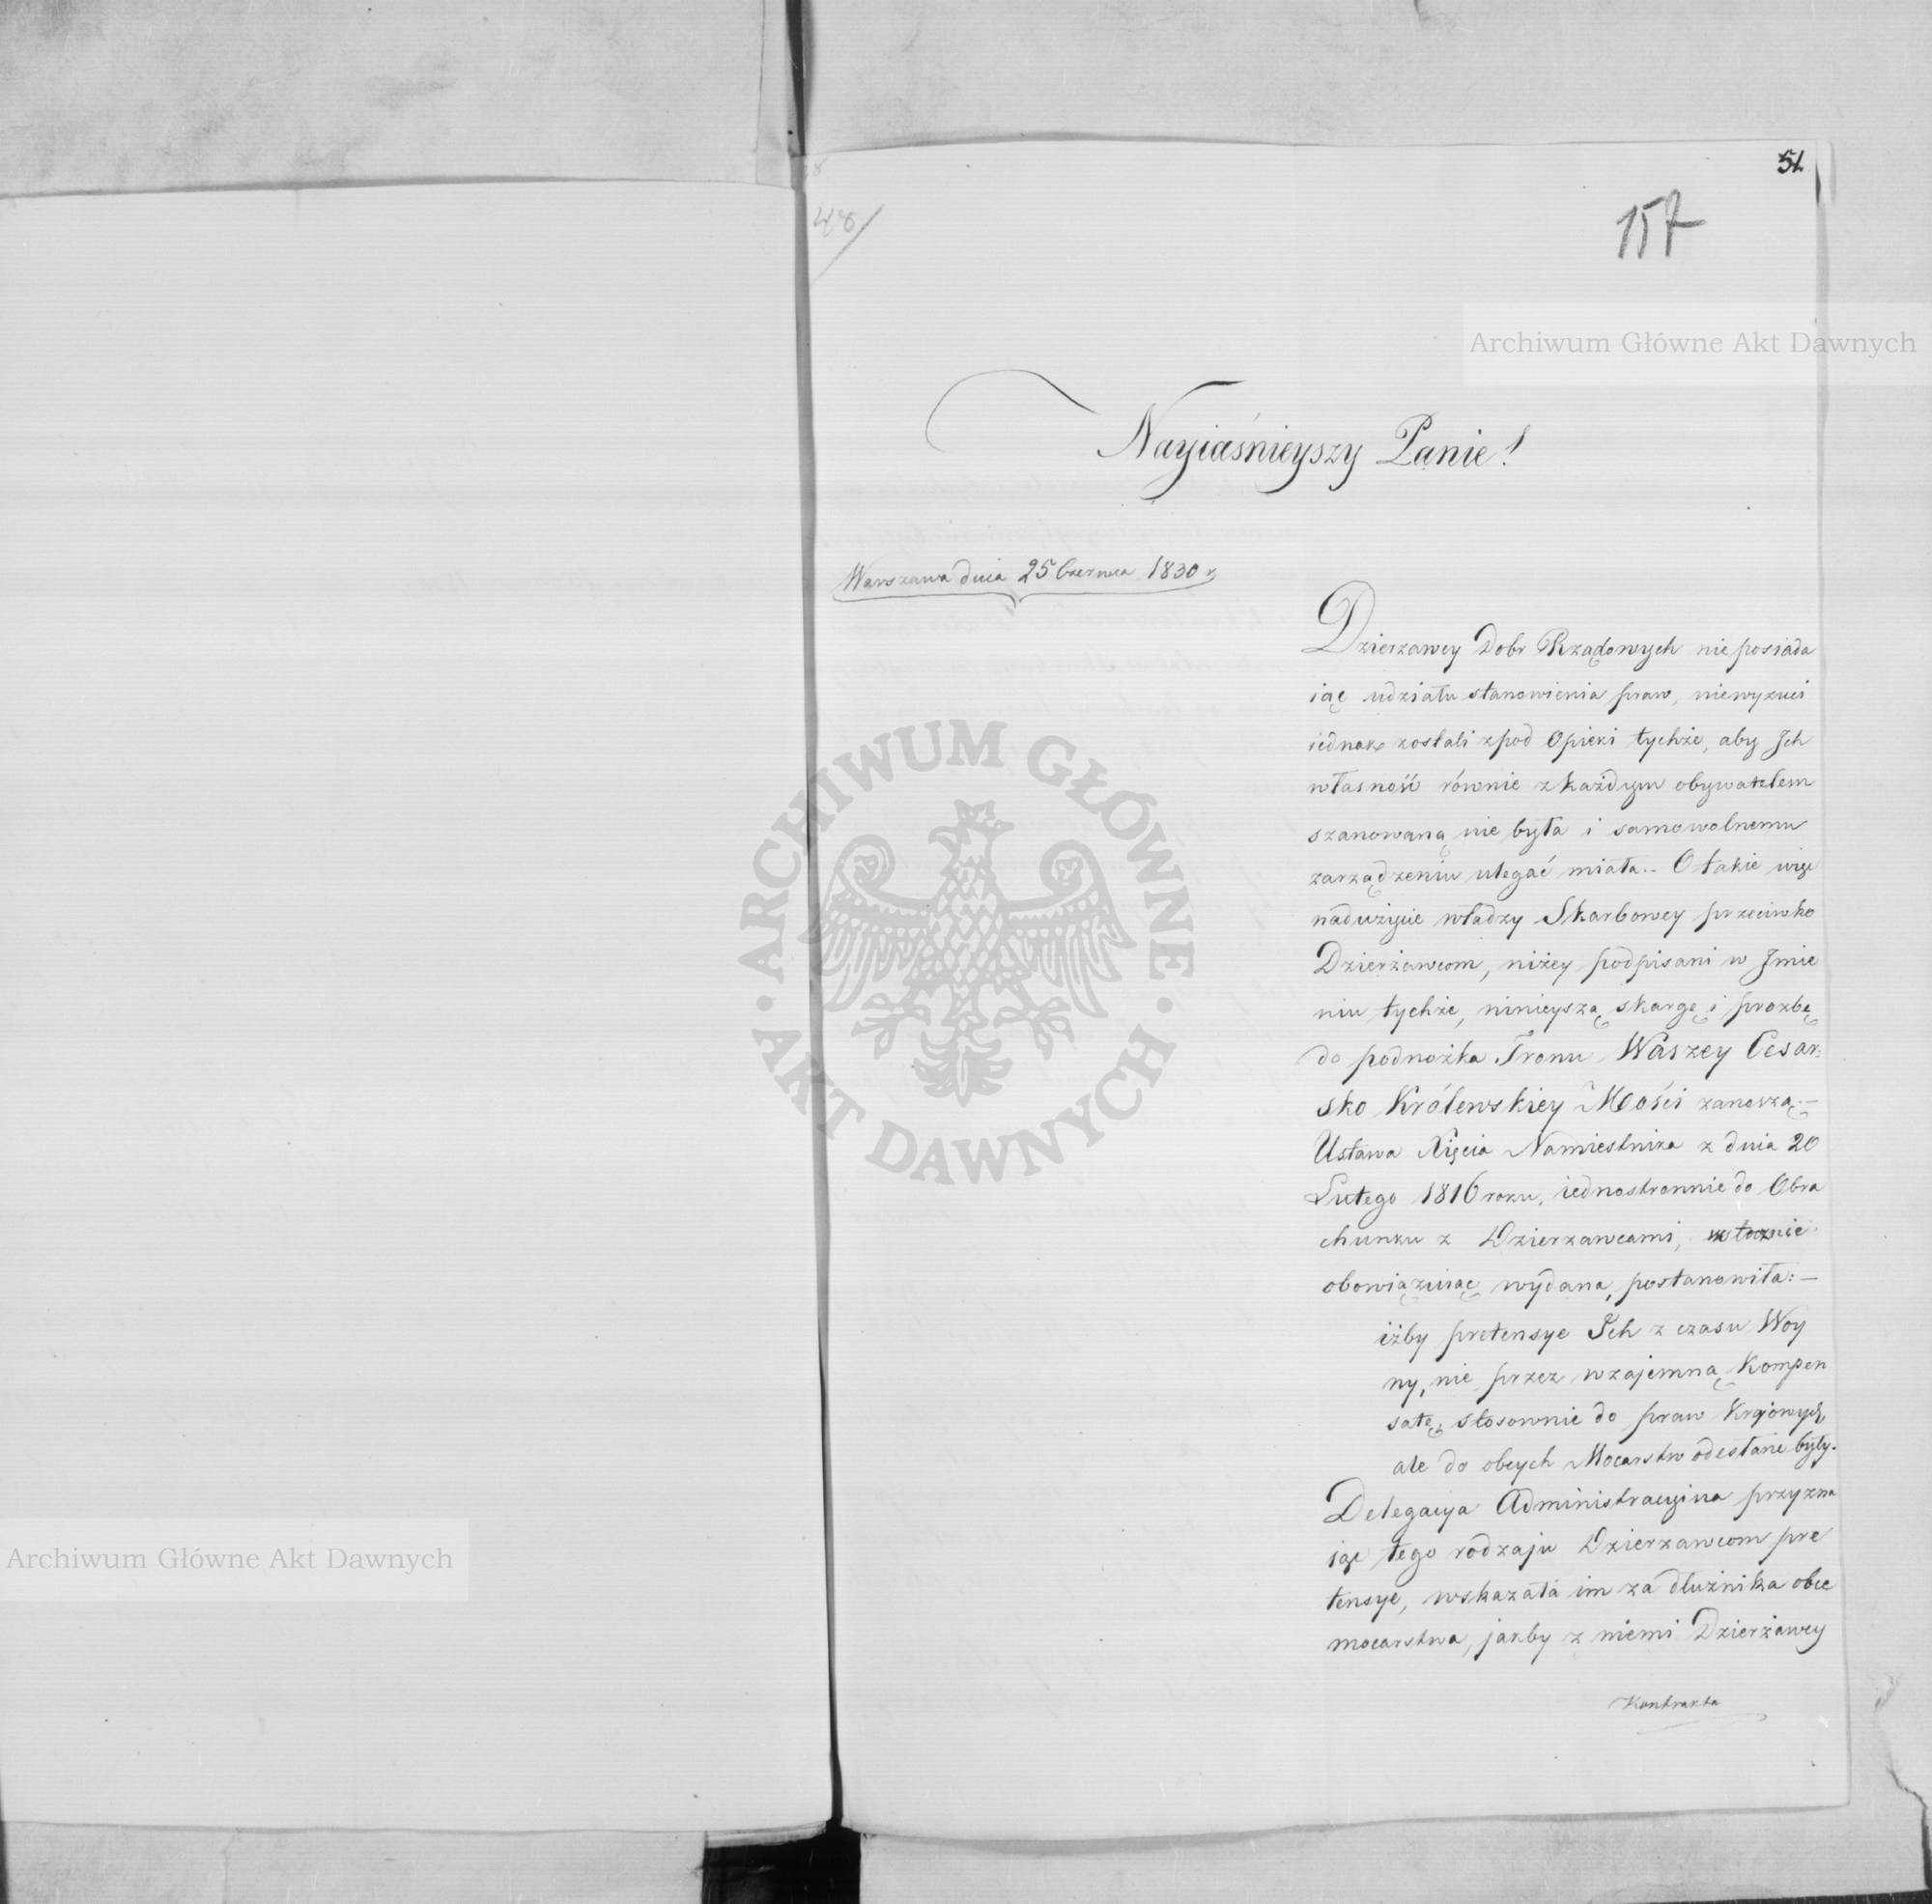 51
157
48
Archiwum Główne Akt Dawnych
Nayiaśnieyszy Panie!
Warszawa dnia 25 Czerwca 1830 r.
Dzierzawcy Dobr Rządowych nie posiada
iąc udziału stanowienia praw, niewyzuci
iednak zostali zpod Opieki tychże, aby Ich
własność równie z każdym obywatelem
szanowaną nie była i samowolnemu
zarządzeniu ulegać miała.- O takie więc
nadużycie władzy Skarbowey przeciwko
Dzierżawcom, niżey podpisani w Jmie
niu tychże, ninieyszą skargę i prozbę
do podnożka Tronu Waszey Cesar:
sko Królewskiey Mości zanoszą.-
Ustawa Xięcia Namiestnika z dnia 20
Lutego 1816 roku, iednostronnie do Obra
chunku z Dzierzawcami,
obowiązuiąc wydana, postanowiła:-
iżby pretensye Ich z czasu Woy
ny, nie przez wzajemną Kompen
satę stosownie do praw Krajowych,
ale do obcych Mocarstw odesłane były.
Delegacya Administracyina przyzna
iąc tego rodzaju Dzierzawcom pre
tensye, wskazała im za dłużnika obce
mocarstwa, jakby z niemi Dzierżawcy
Kontrakta
ARCHIWUM GŁÓWNE · AKT DAWNYCH ·
Archiwum Główne Akt Dawnych